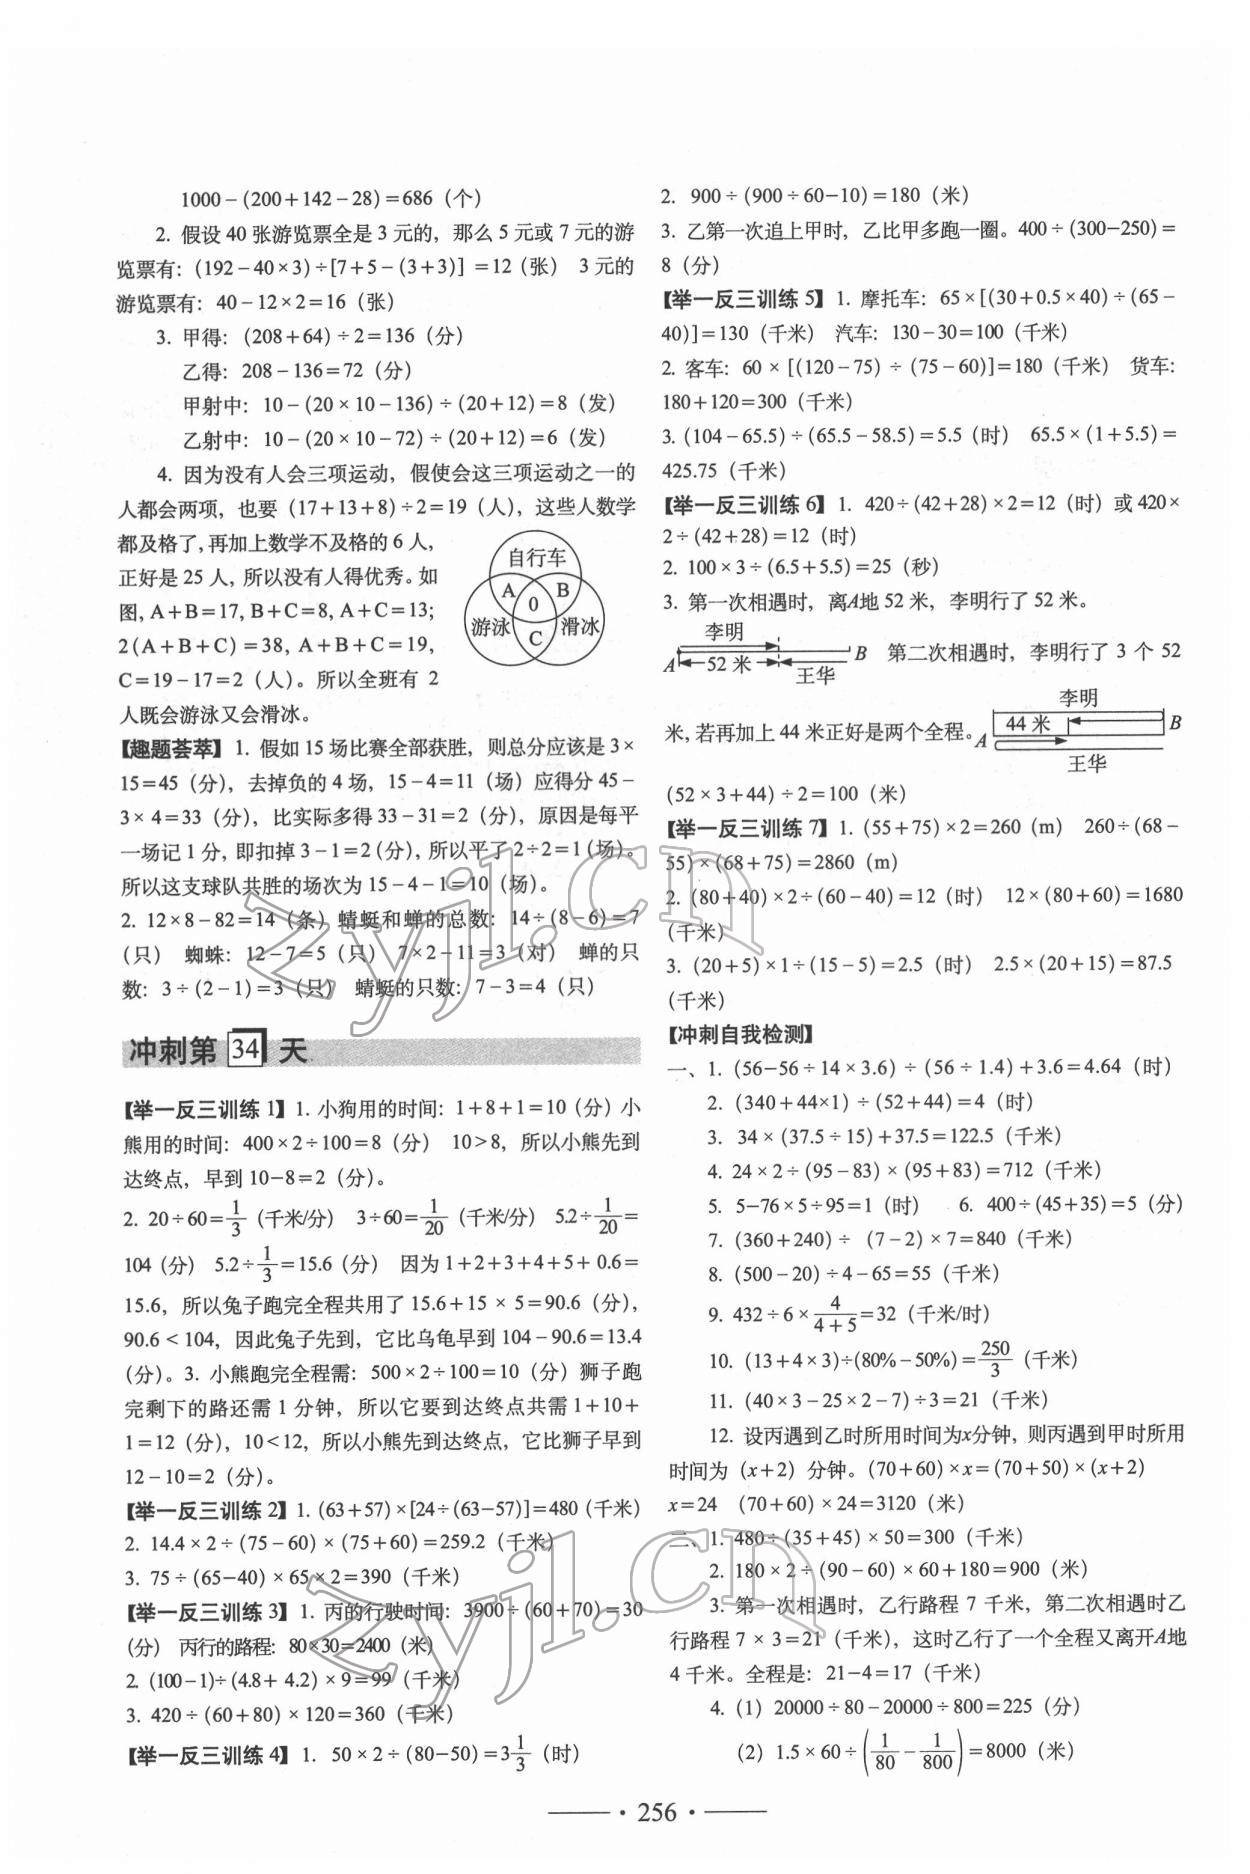 1000－(200＋142－28)＝686（个）
2. 假设 40 张游览票全是 3 元的，那么 5 元或 7 元的游
览票有：(192－40×3)÷[7＋5－(3＋3)]＝12（张） 3 元的
游览票有：40－12×2＝16（张）
3. 甲得：(208＋64)÷2＝136（分）
乙得：208－136＝72（分）
甲射中：10－(20×10－136)÷(20＋12)＝8（发）
乙射中：10－(20×10－72)÷(20＋12)＝6（发）
4. 因为没有人会三项运动，假使会这三项运动之一的
人都会两项，也要 (17＋13＋8)÷2＝19（人），这些人数学
都及格了，再加上数学不及格的 6 人，
正好是 25 人，所以没有人得优秀。如
图，A＋B＝17，B＋C＝8，A＋C＝13；
2(A＋B＋C)＝38，A＋B＋C＝19，
C＝19－17＝2（人）。所以全班有 2
人既会游泳又会滑冰。
自行车
A B
0
游泳 C 滑冰
【趣题荟萃】1. 假如 15 场比赛全部获胜，则总分应该是 3×
15＝45（分），去掉负的 4 场，15－4＝11（场）应得分 45－
3×4＝33（分），比实际多得 33－31＝2（分），原因是每平
一场记 1 分，即扣掉 3－1＝2（分），所以平了 2÷2＝1（场）。
所以这支球队共胜的场次为 15－4－1＝10（场）。
2. 12×8－82＝14（条）蜻蜓和蝉的总数：14÷(8－6)＝7
（只） 蜘蛛：12－7＝5（只） 7×2－11＝3（对） 蝉的只
数：3÷(2－1)＝3（只） 蜻蜓的只数：7－3＝4（只）
冲刺第 34 天
【举一反三训练 1】1. 小狗用的时间：1＋8＋1＝10（分）小
熊用的时间：400×2÷100＝8（分） 10＞8，所以小熊先到
达终点，早到 10－8＝2（分）。
2. 20÷60＝1/3（千米/分） 3÷60＝1/20（千米/分） 5.2÷1/20＝
104（分） 5.2÷1/3＝15.6（分） 因为 1＋2＋3＋4＋5＋0.6＝
15.6，所以兔子跑完全程共用了 15.6＋15×5＝90.6（分），
90.6＜104，因此兔子先到，它比乌龟早到 104－90.6＝13.4
（分）。3. 小熊跑完全程需：500×2÷100＝10（分）狮子跑
完剩下的路还需 1 分钟，所以它要到达终点共需 1＋10＋
1＝12（分），10＜12，所以小熊先到达终点，它比狮子早到
12－10＝2（分）。
【举一反三训练 2】1. (63＋57)×[24÷(63－57)]＝480（千米）
2. 14.4×2÷(75－60)×(75＋60)＝259.2（千米）
3. 75÷(65－40)×65×2＝390（千米）
【举一反三训练 3】1. 丙的行驶时间：3900÷(60＋70)＝30
（分） 丙行的路程：80×30＝2400（米）
2. (100－1)÷(4.8＋4.2)×9＝99（千米）
3. 420÷(60＋80)×120＝360（千米）
【举一反三训练 4】1. 50×2÷(80－50)＝3 1/3（时）
2. 900÷(900÷60－10)＝180（米）
3. 乙第一次追上甲时，乙比甲多跑一圈。400÷(300－250)＝
8（分）
【举一反三训练 5】1. 摩托车：65×[(30＋0.5×40)÷(65－
40)]＝130（千米） 汽车：130－30＝100（千米）
2. 客车：60×[(120－75)÷(75－60)]＝180（千米） 货车：
180＋120＝300（千米）
3. (104－65.5)÷(65.5－58.5)＝5.5（时） 65.5×(1＋5.5)＝
425.75（千米）
【举一反三训练 6】1. 420÷(42＋28)×2＝12（时）或 420×
2÷(42＋28)＝12（时）
2. 100×3÷(6.5＋5.5)＝25（秒）
3. 第一次相遇时，离A地 52 米，李明行了 52 米。
李明
A 52 米 B 第二次相遇时，李明行了 3 个 52
王华
李明
米，若再加上 44 米正好是两个全程。A 44 米 B
王华
(52×3＋44)÷2＝100（米）
【举一反三训练 7】1. (55＋75)×2＝260（m） 260÷(68－
55)×(68＋75)＝2860（m）
2. (80＋40)×2÷(60－40)＝12（时） 12×(80＋60)＝1680
（千米）
3. (20＋5)×1÷(15－5)＝2.5（时） 2.5×(20＋15)＝87.5
（千米）
【冲刺自我检测】
一、1. (56－56÷14×3.6)÷(56÷1.4)＋3.6＝4.64（时）
2. (340＋44×1)÷(52＋44)＝4（时）
3. 34×(37.5÷15)＋37.5＝122.5（千米）
4. 24×2÷(95－83)×(95＋83)＝712（千米）
5. 5－76×5÷95＝1（时） 6. 400÷(45＋35)＝5（分）
7. (360＋240)÷(7－2)×7＝840（千米）
8. (500－20)÷4－65＝55（千米）
9. 432÷6×4/(4＋5)＝32（千米/时）
10. (13＋4×3)÷(80%－50%)＝250/3（千米）
11. (40×3－25×2－7)÷3＝21（千米）
12. 设丙遇到乙时所用时间为x分钟，则丙遇到甲时所用
时间为（x＋2）分钟。(70＋60)×x＝(70＋50)×(x＋2)
x＝24 (70＋60)×24＝3120（米）
二、1. 480÷(35＋45)×50＝300（千米）
2. 180×2÷(90－60)×60＋180＝900（米）
3. 第一次相遇时，乙行路程 7 千米，第二次相遇时乙
行路程 7×3＝21（千米），这时乙行了一个全程又离开A地
4 千米。全程是：21－4＝17（千米）
4. (1) 20000÷80－20000÷800＝225（分）
(2) 1.5×60÷(1/80－1/800)＝8000（米）
· 256 ·
zyjl.cn
zyjl.cn